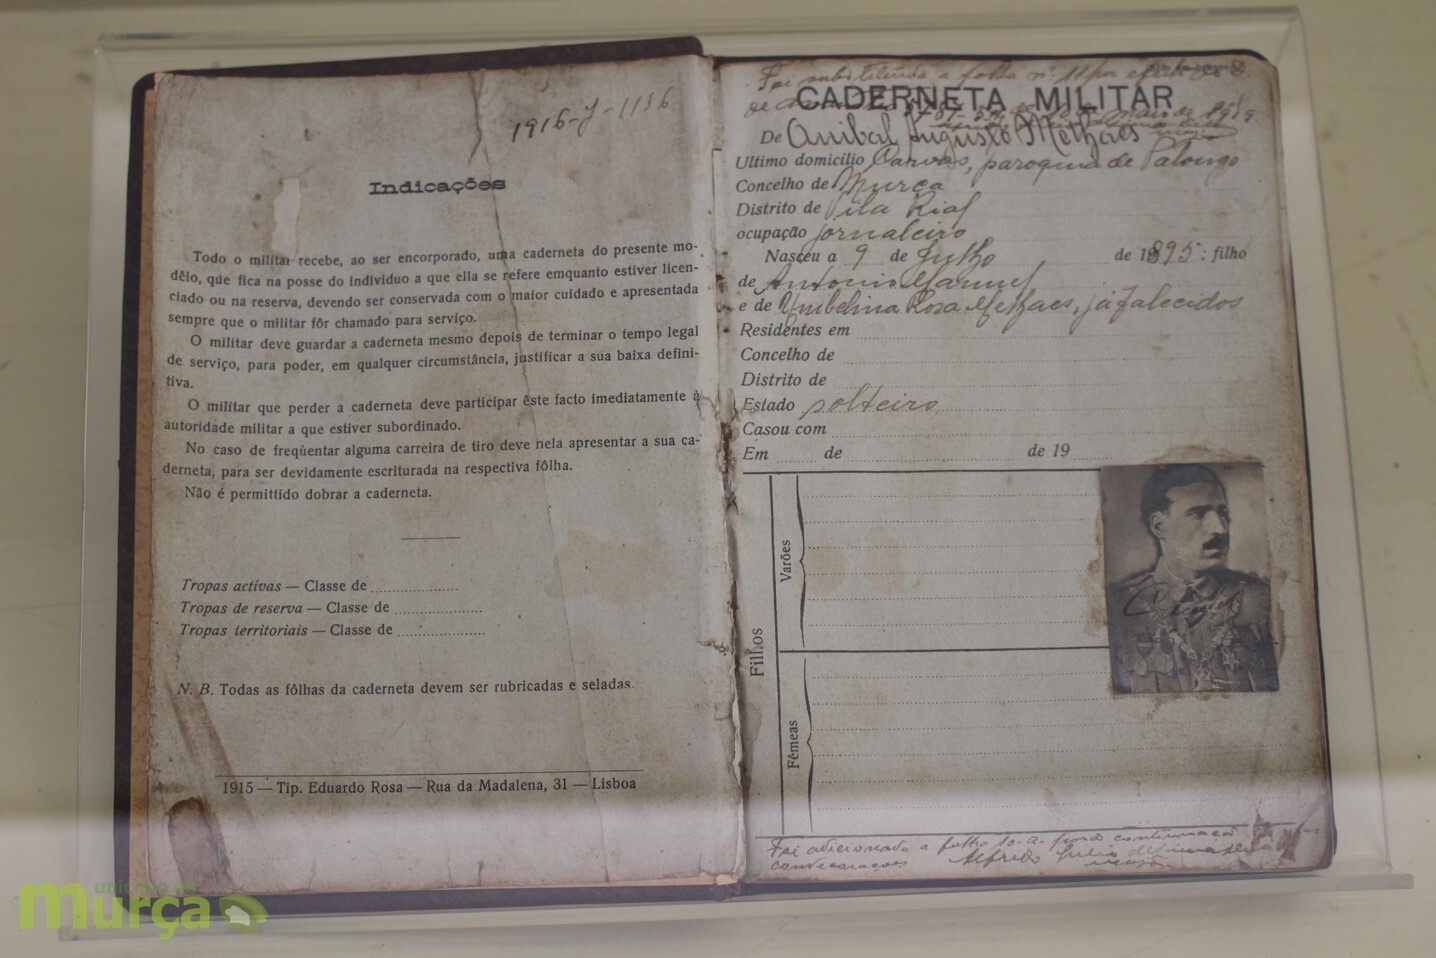 1916-J-1136
Indicações
Todo o militar recebe, ao ser encorporado, uma caderneta do presente mo-
dêlo, que fica na posse do individuo a que ela se refere emquanto estiver licen-
ciado ou na reserva, devendo ser conservada com o maior cuidado e apresentada
sempre que o militar fôr chamado para serviço.
O militar deve guardar a caderneta mesmo depois de terminar o tempo legal
de serviço, para poder, em qualquer circumstância, justificar a sua baixa defini-
tiva.
O militar que perder a caderneta deve participar êste facto imediatamente à
autoridade militar a que estiver subordinado.
No caso de freqüentar alguma carreira de tiro deve nela apresentar a sua ca-
derneta, para ser devidamente escriturada na respectiva fôlha.
Não é permittido dobrar a caderneta.
Tropas activas — Classe de
Tropas de reserva — Classe de
Tropas territoriais — Classe de
N. B. Todas as fôlhas da caderneta devem ser rubricadas e seladas.
1915 — Tip. Eduardo Rosa — Rua da Madalena, 31 — Lisboa
Foi substituida a folha nº 11
CADERNETA MILITAR
De Anibal Augusto Melhaes
Ultimo domicilio Carvas, paroquia de
Concelho de Murça
Distrito de Vila Rial
ocupação jornaleiro
Nasceu a 9 de Julho de 1895: filho
de Antonio Manuel
e de Umbelina Rosa Melhaes, já falecidos
Residentes em
Concelho de
Distrito de
Estado solteiro
Casou com
Em de de 19
Filhos
Varões
Fêmeas
Foi adicionada a folha 10-A para continuação
Alfredo
unidos de
murça